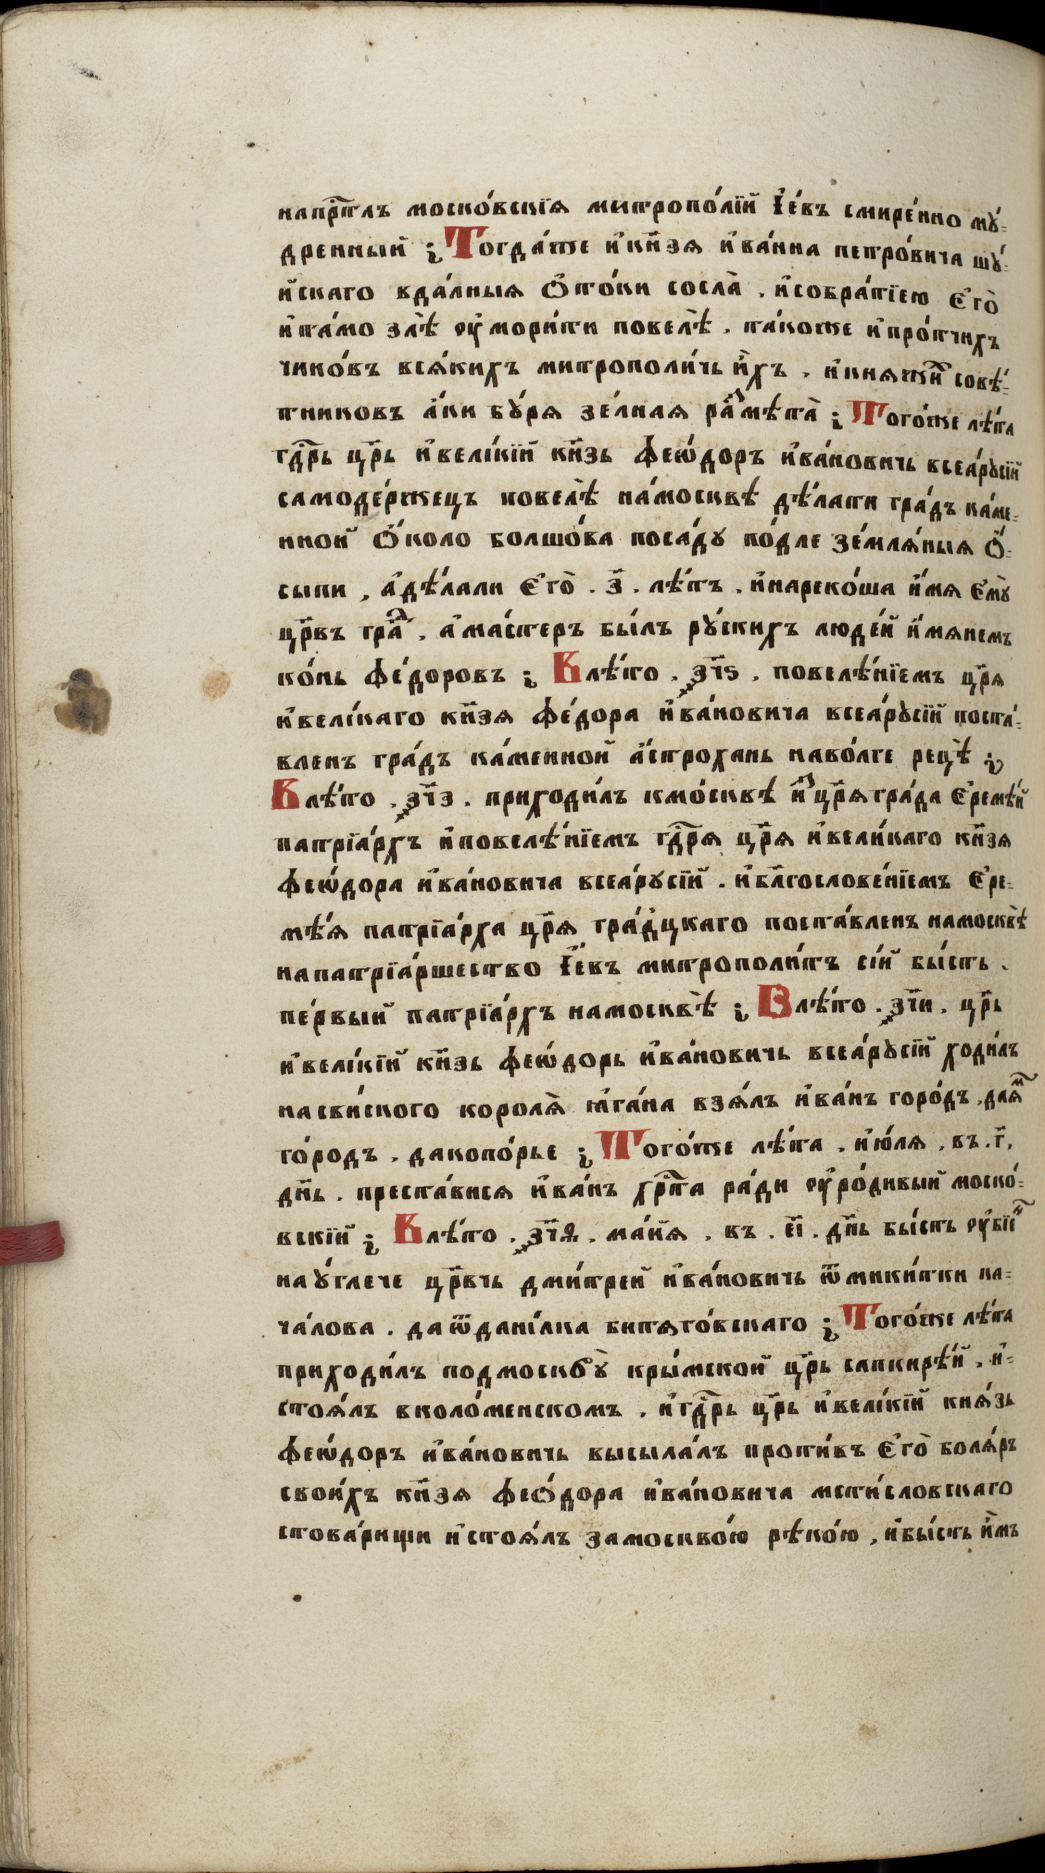 напрⷭ҇тлъ моско́вскїѧ митропо́лїй І҆е́въ смире́нно мꙋ́-
дренный ⁏ Тогда́же и҆кн҃зѧ и҆ва́нна петро́вича шꙋ́-
йскаго вда́лныѧ Ѻ҆то́ки сосла̀ . и҆собра́тїею Є҆го̀
и҆та́мо злѣ̀ ᲂу҆мори́ти повелѣ̀ . та́коже и҆про́тчихъ
чино́въ всѧ́кихъ митрополи́чь и҆́хъ . и҆кнѧжи́ⷯ совѣ́-
тниковъ а҆́ки бꙋ́рѧ зе́лнаѧ раⷥ҇мѣта̀ ⁏ Того́же лѣ́та
гдⷭ҇рь цр҃ь и҆вели́кїй кн҃зь феѡ́доръ и҆ва́новичь всеа́рꙋсїи
самоде́ржецъ повелѣ̀ на́москвѣ дѣ́лати гра́дъ ка́ме-
нной Ѻ҆́коло болшо́ва поса́дꙋ по́дле землѧ́ныѧ Ѻ҆́-
сыпи , а҆дѣ́лали Є҆го̀ . з҃ . лѣтъ . и҆нареко́ша и҆́мѧ Є҆мꙋ̀
цр҃въ граⷣ . а҆ма́стеръ бы́лъ рꙋ́скихъ люде́й и҆́мѧнемъ
ко́нь фе́доровъ ⁏ Влѣ́то . ҂зч҃ѕ . повелѣ́нїемъ цр҃ѧ
и҆вели́каго кн҃зѧ фе́дора и҆ва́новича всеа́рꙋсїй поста́-
вленъ гра́дъ ка́менной а҆́строхань наво́лге рецѣ̀ ⁏
Влѣ́то . ҂зч҃з . приходи́лъ кмо́сквѣ и҆ⷥ цр҃ѧгра́да Є҆ремѣ́й
патрїа́рхъ и҆повелѣ́нїемъ гдⷭ҇рѧ цр҃ѧ и҆вели́каго кн҃зѧ
феѡ́дора и҆ва́новича всеа́рꙋсїй . и҆бл҃гослове́нїемъ Є҆ре-
мѣ́ѧ патрїа́рха цр҃ѧ гра́дцкаго поста́вленъ намосквѣ̀
напатрїа́ршество І҆е́въ митрополи́тъ сі́й бы́сть .
пе́рвый патрїа́рхъ намосквѣ̀ ⁏ Влѣ́то . ҂зч҃и . цр҃ь
и҆вели́кїй кн҃зь феѡ́доръ и҆ва́новичь всеа́рꙋсїй ходи́лъ
насви́ского королѧ̀ ꙗ҆га́на взѧ́лъ и҆ва́нъ горо́дъ , даѧⷨ
го́родъ . дакопо́рье ⁏ Того́же лѣ́та . и҆ю́лѧ . въ . г҃ .
дн҃ь . преста́висѧ и҆ва́нъ хрⷭ҇та ра́ди ᲂу҆ро́дивый моско́-
вскїй ⁏ Влѣ́то . ҂зч҃ѳ . ма́йѧ . въ . еі҃ . дн҃ь бы́сть ᲂу҆бїе́ⷩ
наꙋ́глече цр҃вчь дми́трей и҆ва́новичь ѿмики́тки ка-
ча́лова . даѿдани́лка битѧго́вскаго ⁏ Того́же лѣ́та
приходи́лъ подмосквꙋ̀ кры́мской цр҃ь сапкирѣ́й . и҆-
стоѧ́лъ вколо́менскомъ . и҆гдⷭ҇рь цр҃ь и҆вели́кїй кнѧ́зь
феѡ́доръ и҆ва́новичь высыла́лъ проти́въ Є҆го̀ болѧ́ръ
свои́хъ кн҃зѧ феѻ́дора и҆ва́новича мсти́словскаго
стова́рищи и҆стоѧ́лъ замоскво́ю рѣко́ю , и҆бы́сть и҆́мъ